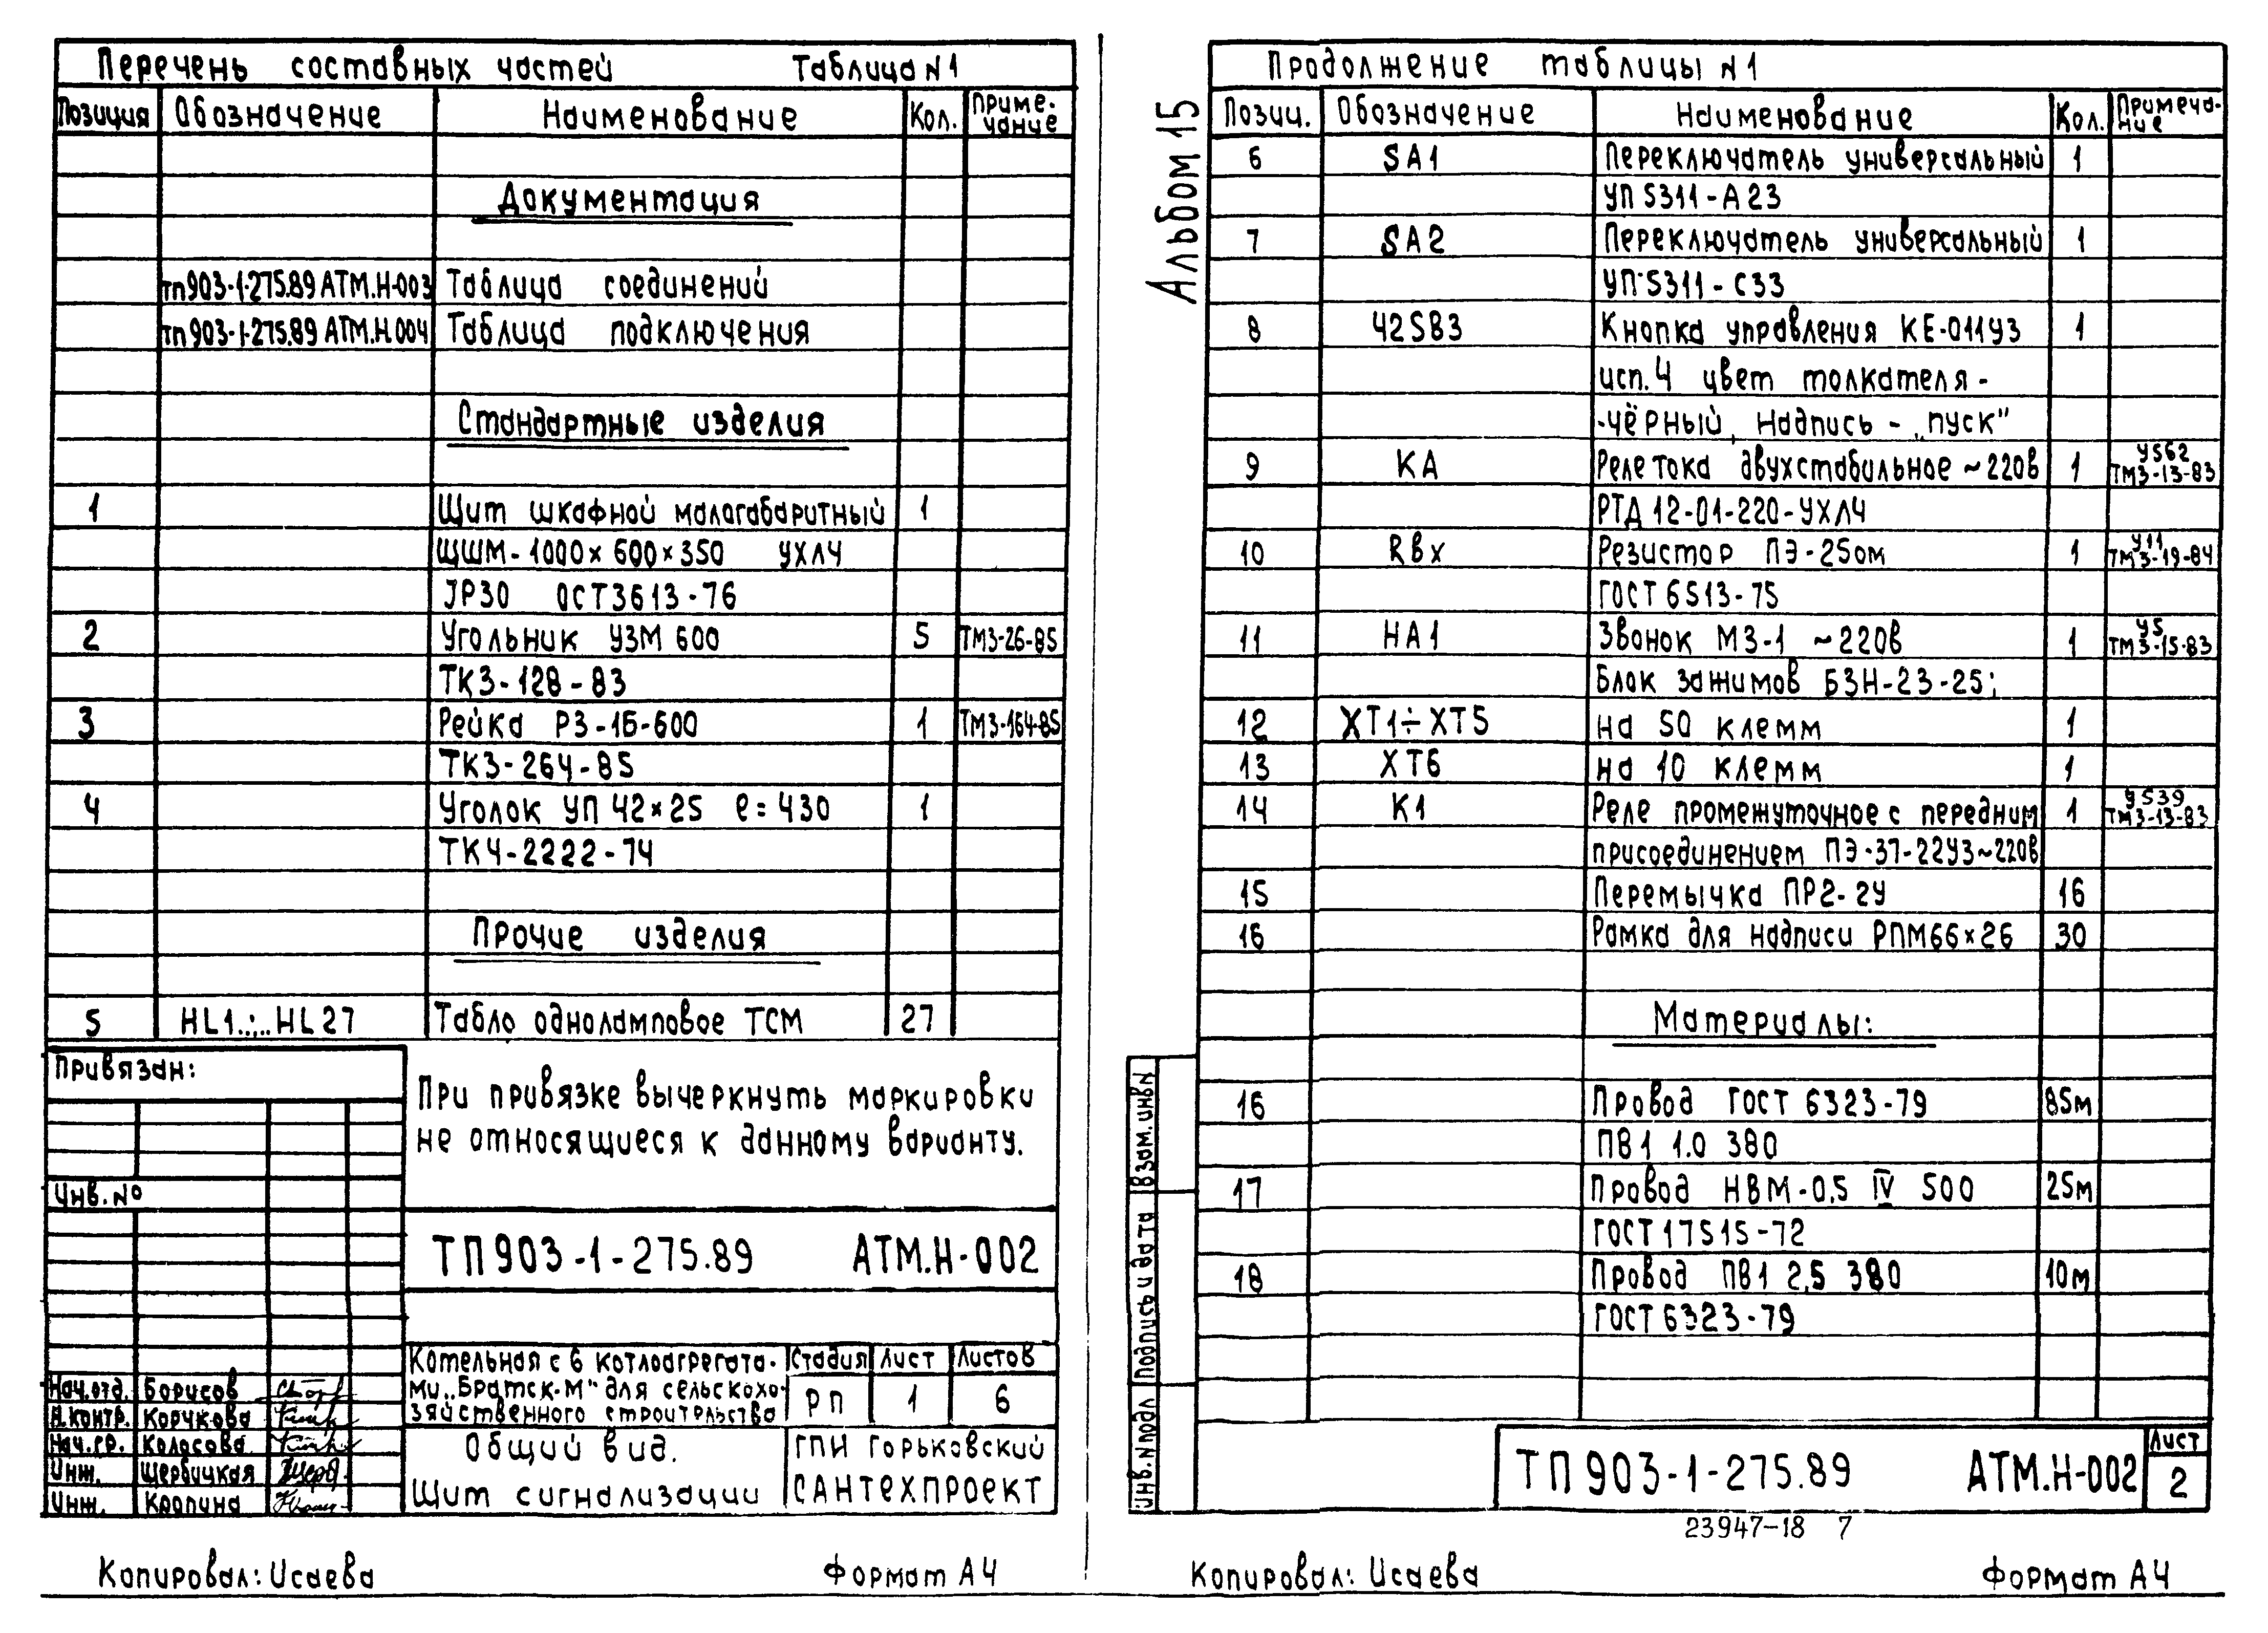 Перечень составных частей Таблица N1
Позиция Обозначение Наименование Кол. Приме-
чание
Документация
тп903-1-275.89 АТМ.Н-003 Таблица соединений
тп903-1-275.89 АТМ.Н.004 Таблица подключения
Стандартные изделия
1 Щит шкафной малогабаритный 1
ЩШМ-1000×600×350 УХЛ4
JР30 ОСТ3613-76
2 Угольник УЗМ 600 5 ТМ3-26-85
ТК3-128-83
3 Рейка РЗ-1Б-600 1 ТМ3-164-85
ТК3-264-85
4 Уголок УП 42×25 e=430 1
ТК4-2222-74
Прочие изделия
5 HL1..:..HL27 Табло одноламповое ТСМ 27
Привязан:
Инв.№
При привязке вычеркнуть маркировки
не относящиеся к данному варианту.
ТП903-1-275.89 АТМ.Н-002
Котельная с 6 котлоагрегата-
ми „Братск-М" для сельскохо-
зяйственного строительства
Стадия Лист Листов
РП 1 6
Нач.отд. Борисов
Н.контр. Корчкова
Нач.гр. Колосова
Инж. Щербицкая
Инж. Крапина
Общий вид.
Щит сигнализации
ГПИ Горьковский
САНТЕХПРОЕКТ
Копировал: Исаева Формат А4
Альбом 15
Продолжение таблицы N1
Позиц. Обозначение Наименование Кол. Примеча-
ние
6 SA1 Переключатель универсальный 1
УП 5311-А23
7 SA2 Переключатель универсальный 1
УП5311-С33
8 42SB3 Кнопка управления КЕ-011У3 1
исп.4 цвет толкателя-
-чёрный, надпись-„пуск"
9 КА Реле тока двухстабильное ~220в 1 У562
ТМ3-13-83
РТД 12-01-220-УХЛ4
10 Rвх Резистор ПЭ-25ом 1 У11
ТМ3-19-84
ГОСТ 6513-75
11 НА1 Звонок МЗ-1 ~220в 1 У5
ТМ3-15-83
Блок зажимов БЗН-23-25;
12 ХТ1÷ХТ5 на 50 клемм 1
13 ХТ6 на 10 клемм 1
14 К1 Реле промежуточное с передним 1 У539
ТМ3-13-83
присоединением ПЭ-37-22У3~220в
15 Перемычка ПР2-2У 16
16 Рамка для надписи РПМ66×26 30
Материалы:
16 Провод ГОСТ 6323-79 85м
ПВ1 1.0 380
17 Провод НВМ-0,5 IV 500 25м
ГОСТ 17515-72
18 Провод ПВ1 2,5 380 10м
ГОСТ 6323-79
Взам.инв N
Подпись и дата
Инв.N подл
ТП903-1-275.89 АТМ.Н-002
Лист
2
23947-18 7
Копировал: Исаева Формат А4